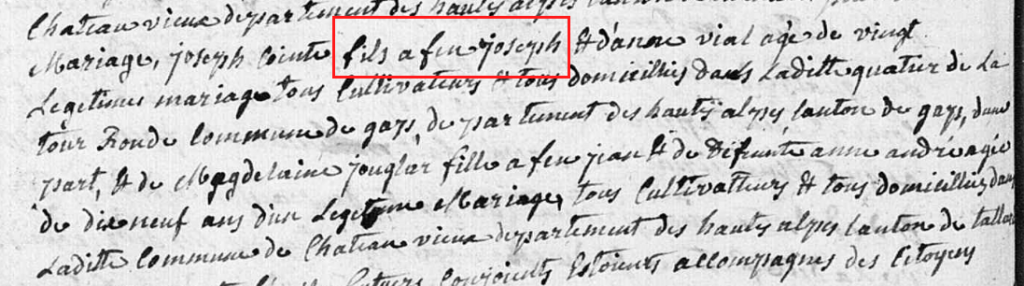 Chateau vieux departement des hautes alpes
Mariage, joseph Cointe fils a feu joseph & d'anne vial agé de vingt
Legetimes mariage tous Cultivateurs & tous domiciliés dans Laditte quatier de La
tour Ronde Commune de gap, departement des hautes alpes Canton de gap, dune
part, & de Magdelaine jouglar fille a feu jean & de Difunte anne andre agée
de dixneuf ans dun Legetime Mariage, tous Cultivateurs & tous domiciliés dans
Laditte Commune de Chateau vieux departement des hautes alpes Canton de tallard
futurs Conjoints Estoient accompagnes des Citoyens